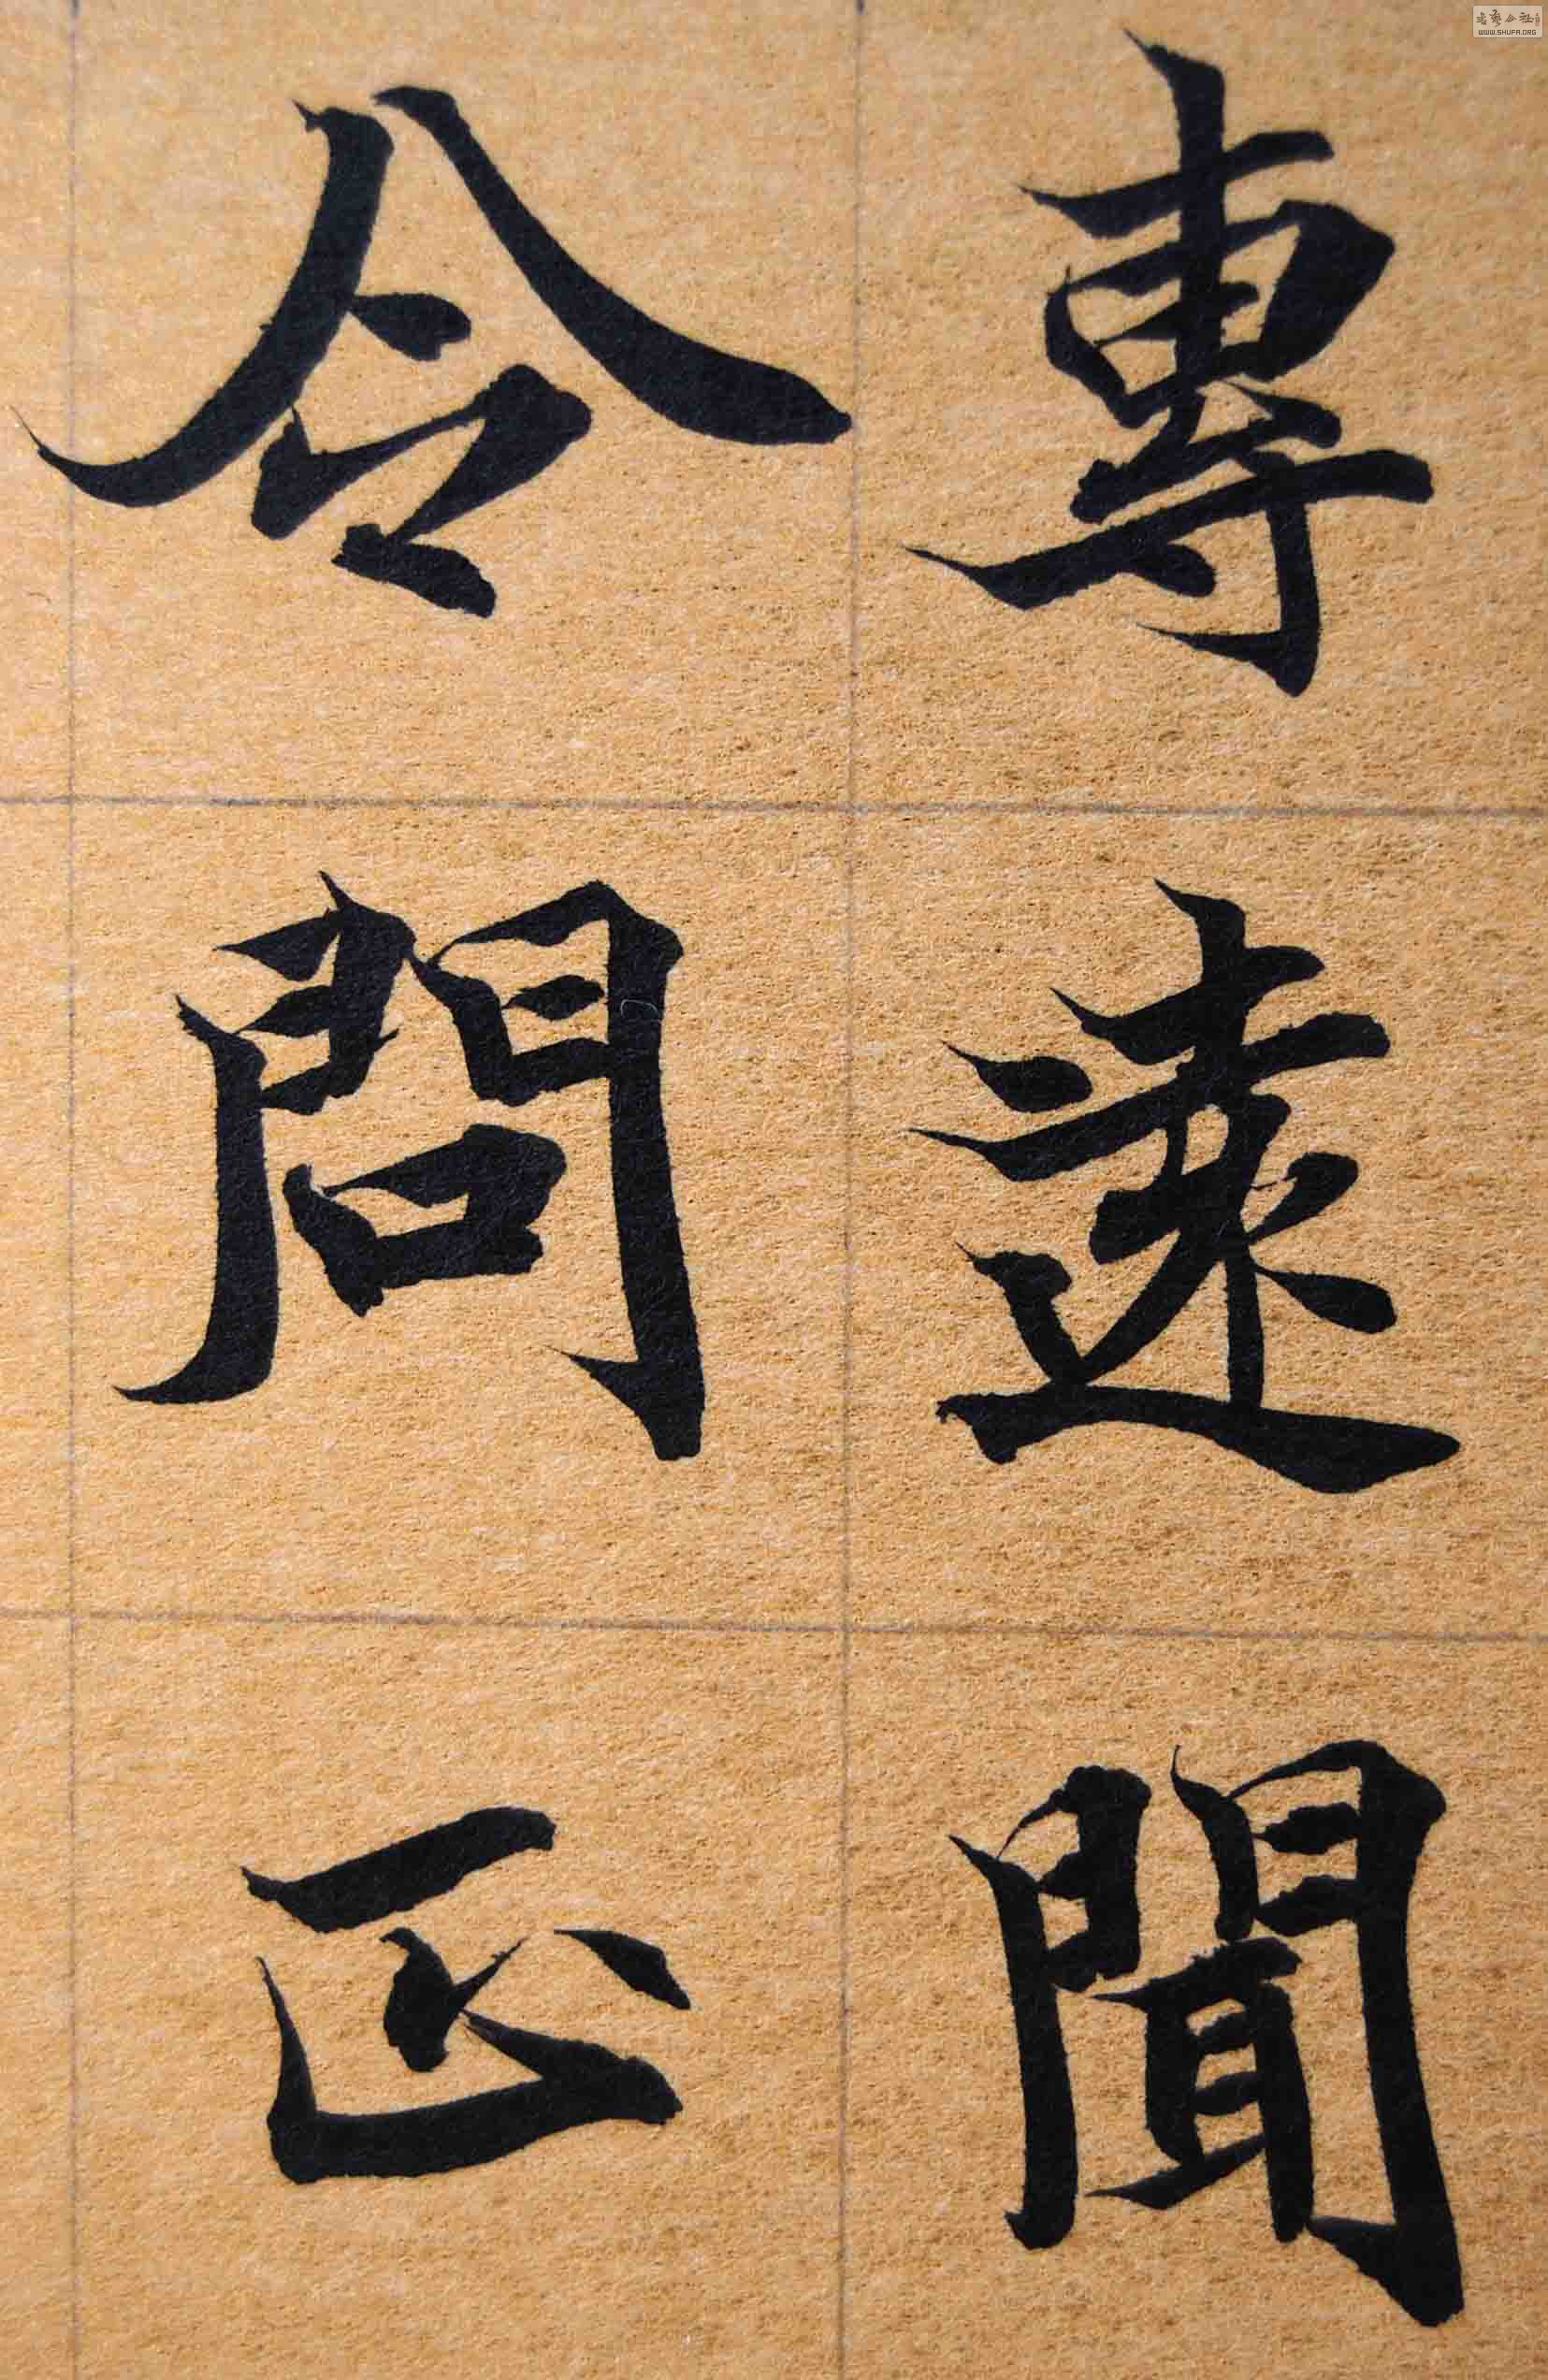 專遠聞
令問正
書藝公社
WWW.SHUFA.ORG